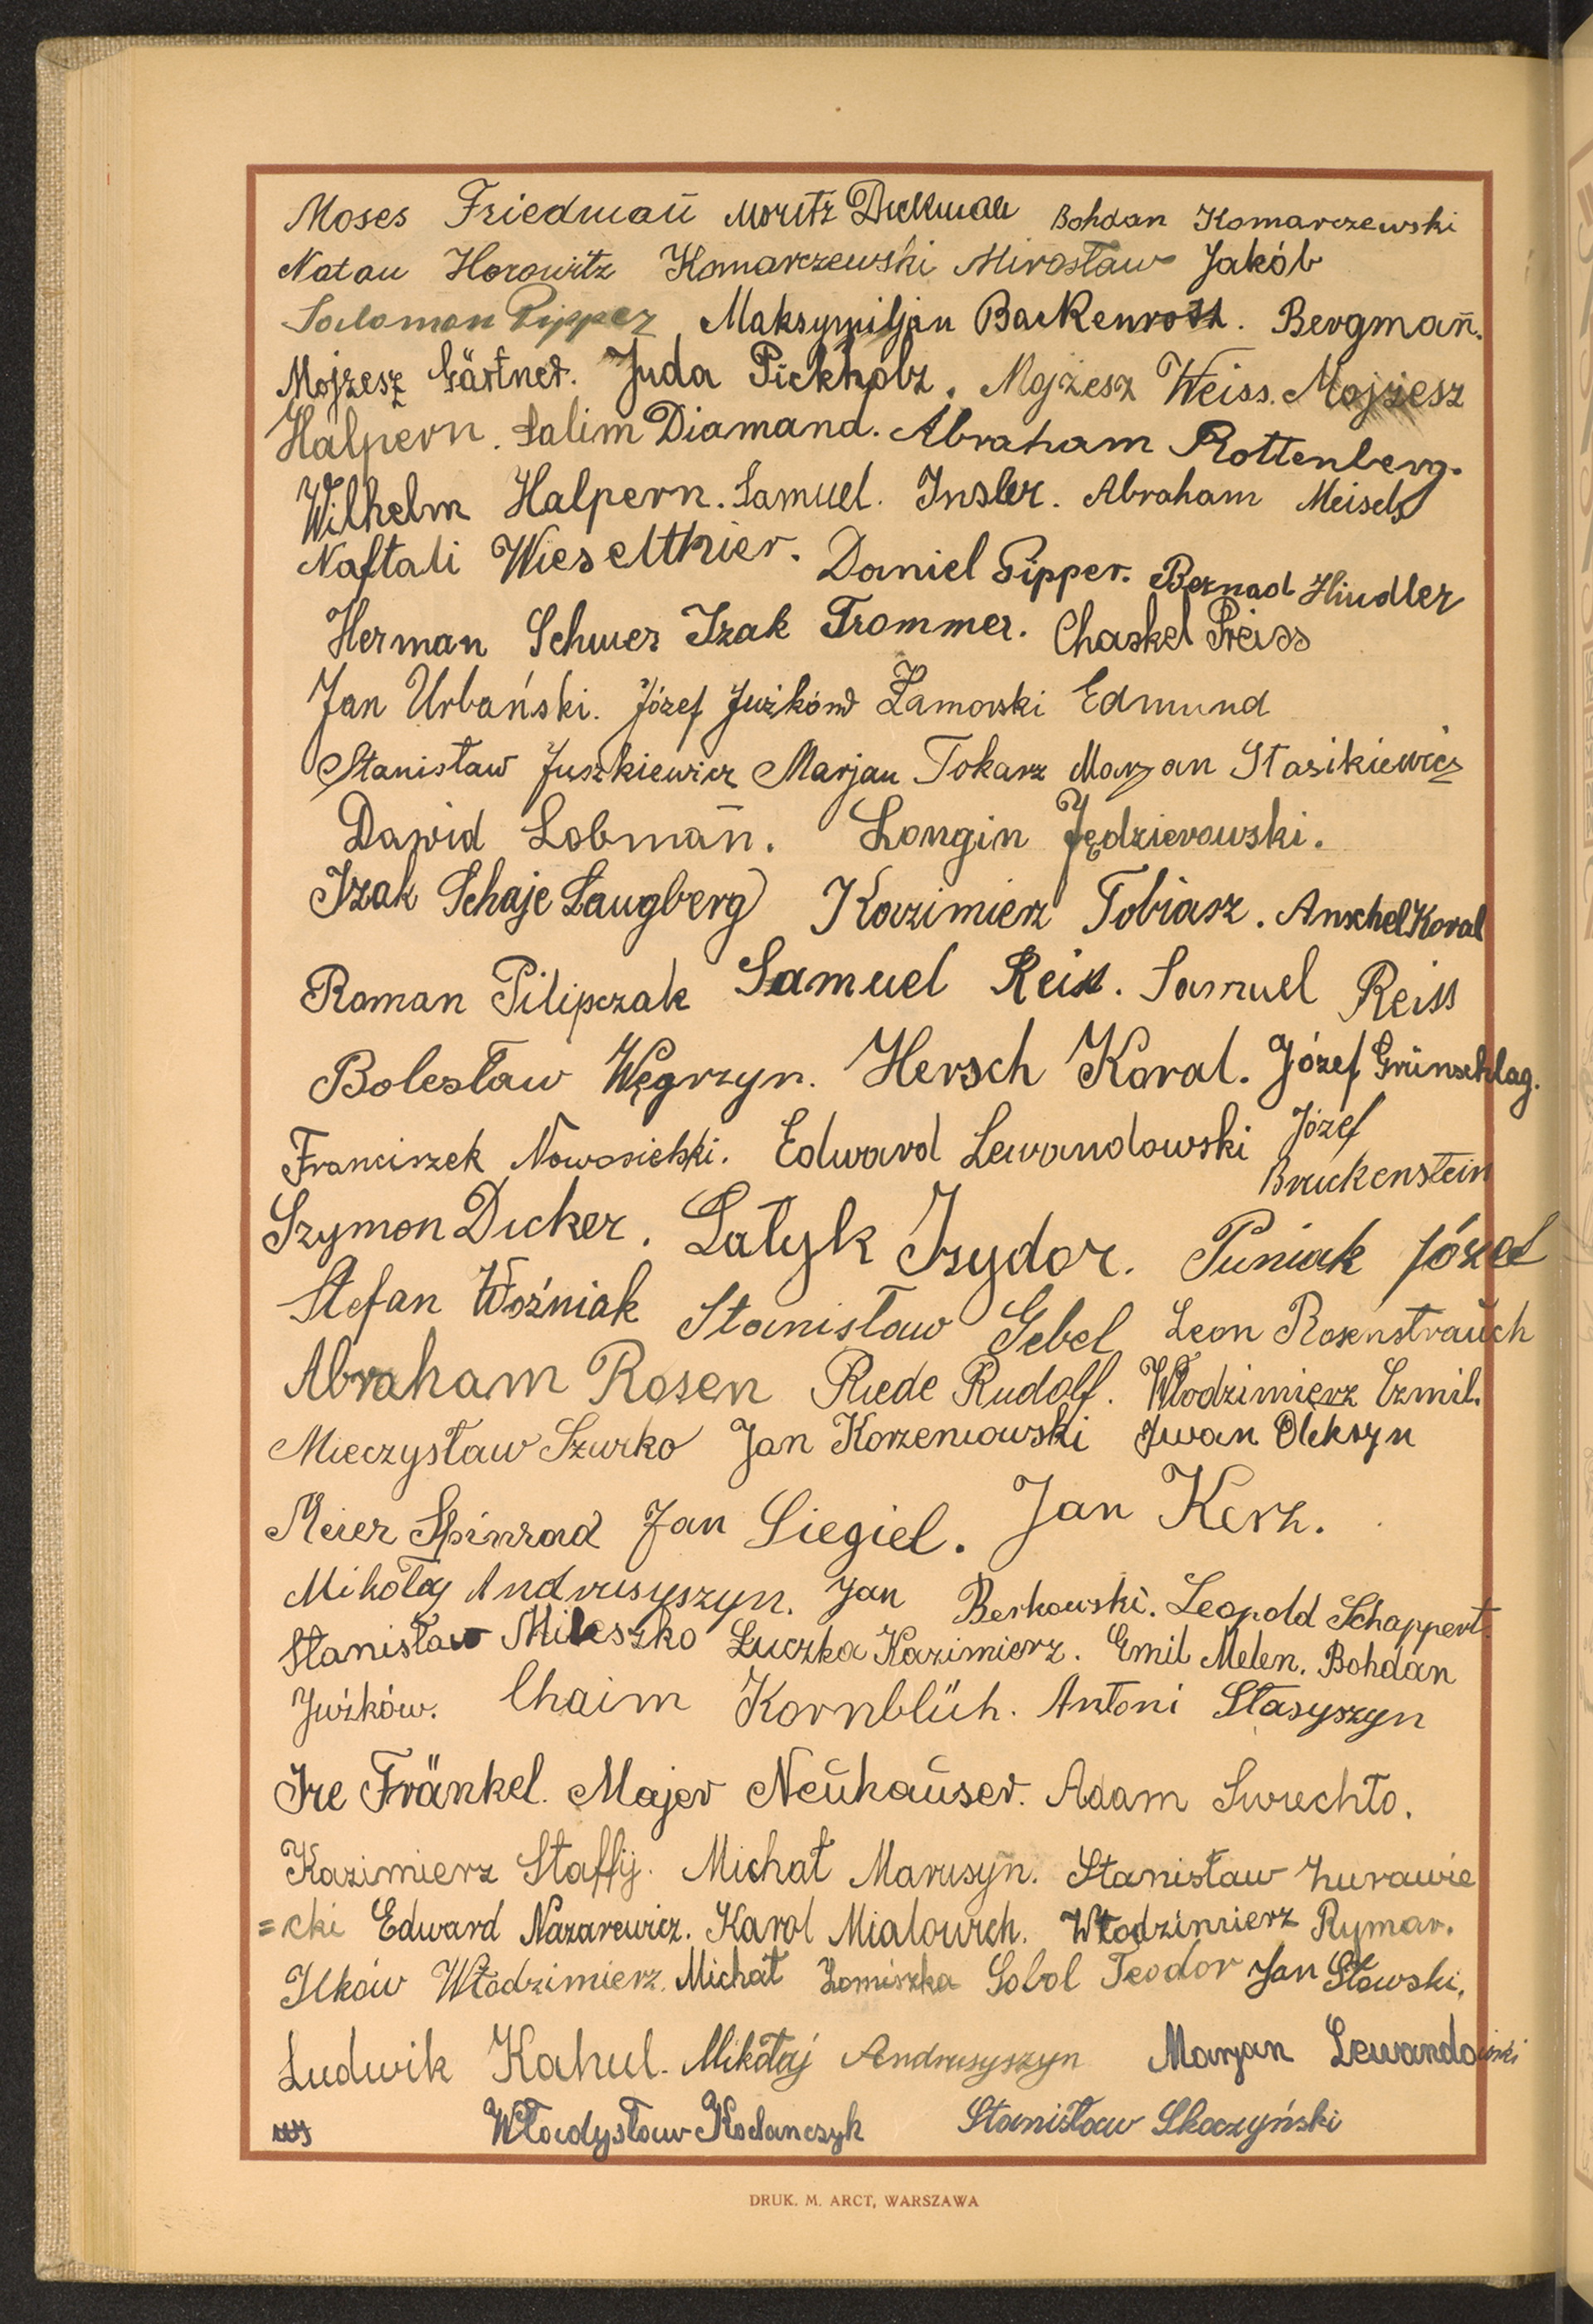 Moses Friedmañ Moritz Dickman Bohdan Komarczewski
Natan Horowitz Komarczewski Mirosław Jakób
Salomon Pipper Maksymiljan Backenroth. Bergmañ.
Mojzesz Gärtner. Juda Pickholz. Mojżesz Weiss. Mojżesz
Halpern. Salim Diamand. Abraham Rottenberg.
Wilhelm Halpern. Samuel. Insler. Abraham Meisels
Naftali Wieselthier. Daniel Pipper. Bernad Hindler
Herman Schwer Izak Trommer. Chaskel Preiss
Jan Urbański. Józef Juźków Zamorski Edmund
Stanisław Juszkiewicz Marjan Tokarz Marjan Stasikiewicz
Dawid Lobmañ. Longin Jędzierowski.
Izak Schaje Langberg Kazimierz Tobiasz. Anschel Koral
Roman Pilipczak Samuel Reiss. Samuel Reiss
Bolesław Węgrzyn. Hersch Koral. Józef Grünschlag.
Franciszek Nowosielski. Edward Lewandowski Józef
Bruckenstein
Szymon Dicker. Łatyk Izydor. Puniak Józef
Stefan Woźniak Stanisław Gebel Leon Rosenstrauch
Abraham Rosen Riede Rudolf. Włodzimierz Czmil.
Mieczysław Szurko Jan Korzeniowski Jwan Oleksyn
Meier Spinrad Jan Siegiel. Jan Kerz.
Mikołaj Andrusyszyn. Jan Berkowski. Leopold Schappert.
Stanisław Mileszko Łuczka Kazimierz. Emil Melen. Bohdan
Juźków. Chaim Kornblüh. Antoni Stasyszyn
Ire Fränkel. Majer Neuhauser. Adam Swiechło.
Kazimierz Staffij. Michał Marusyn. Stanisław Żurawie
=cki Edward Nazarewicz. Karol Mialovich. Włodzimierz Rymar.
Ilków Włodzimierz. Michał Łomiszka Sobol Teodor Jan Sławski.
Ludwik Kahul. Mikołaj Andrusyszyn Marjan Lewandowski
Władysław Kodanczyk Stanisław Skoczyński
DRUK. M. ARCT, WARSZAWA